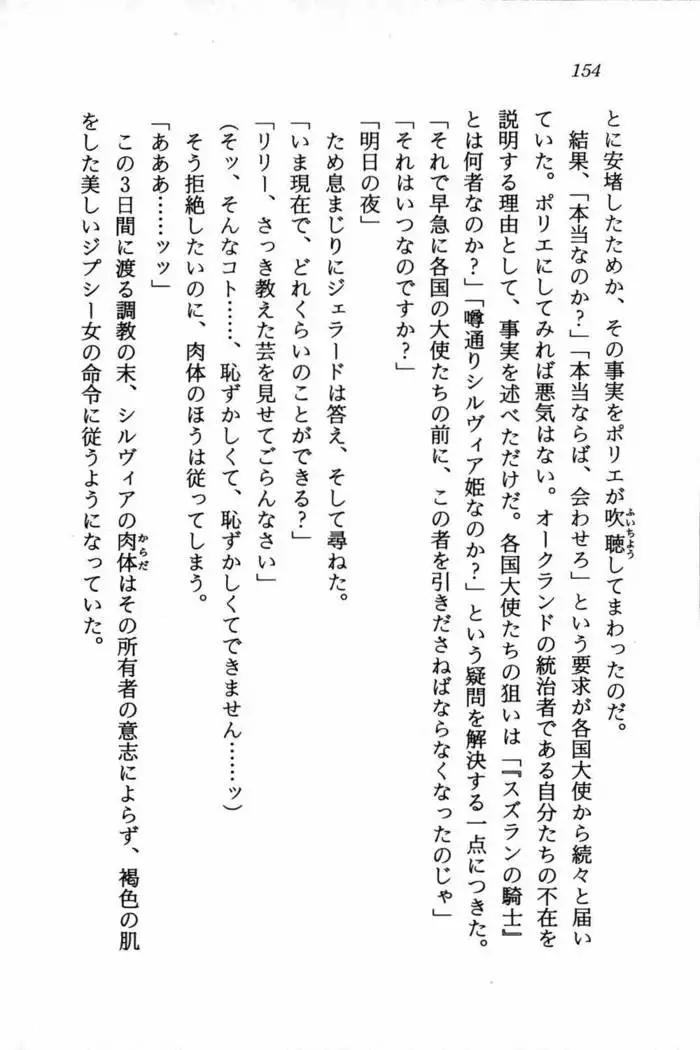 154
とに安堵したためか、その事実をポリエが吹聴してまわったのだ。
ふいちよう
結果、「本当なのか？」「本当ならば、会わせろ」という要求が各国大使から続々と届い
ていた。ポリエにしてみれば悪気はない。オークランドの統治者である自分たちの不在を
説明する理由として、事実を述べただけだ。各国大使たちの狙いは「『スズランの騎士』
とは何者なのか？」「噂通りシルヴィア姫なのか？」という疑問を解決する一点につきた。
「それで早急に各国の大使たちの前に、この者を引きださねばならなくなったのじゃ」
「それはいつなのですか？」
「明日の夜」
ため息まじりにジェラードは答え、そして尋ねた。
「いま現在で、どれくらいのことができる？」
「リリー、さっき教えた芸を見せてごらんなさい」
（そッ、そんなコト……、恥ずかしくて、恥ずかしくてできません……ッ）
そう拒絶したいのに、肉体のほうは従ってしまう。
「あああ……ッッ」
この3日間に渡る調教の末、シルヴィアの肉体はその所有者の意志によらず、褐色の肌
からだ
をした美しいジプシー女の命令に従うようになっていた。